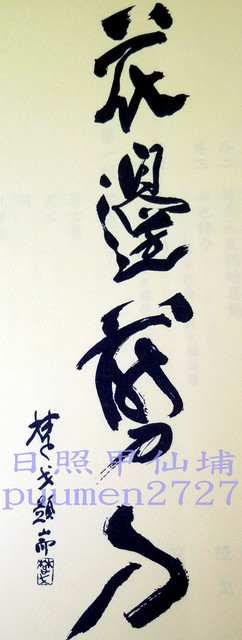 花邊剪刀
日照甲仙埔
puumen2727